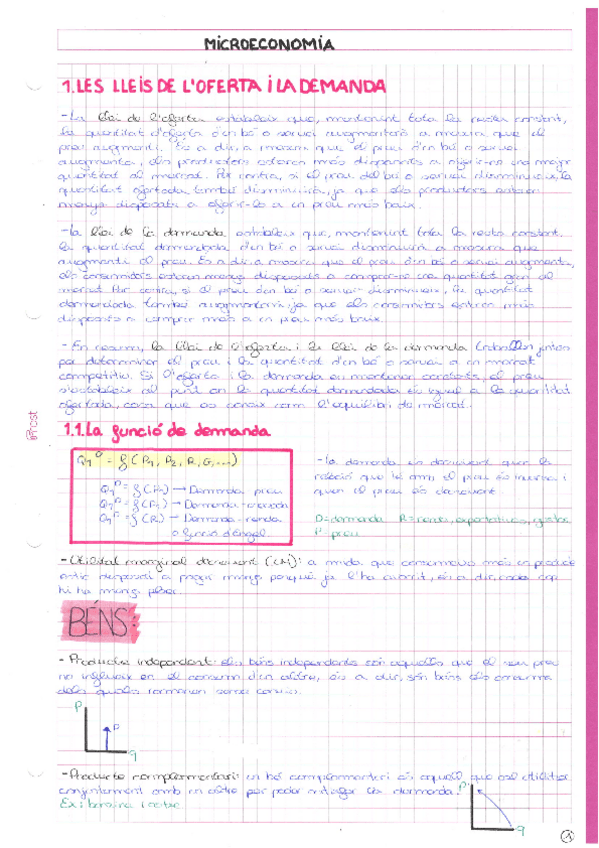 MICROECONOMIA
1. LES LLEIS DE L'OFERTA I LA DEMANDA
- La llei de l'oferta estableix que, mantenint tota la resta constant,
la quantitat d'oferta d'un bé o servei augmentarà a mesura que el
preu augmenti. És a dir, a mesura que el preu d'un bé o servei
augmenta, els productors estaran més disposats a oferir-ne una major
quantitat al mercat. Per contra, si el preu del bé o servei disminueix, la
quantitat ofertada també disminuirà, ja que els productors estaran
menys disposats a oferir-lo a un preu més baix.
- La llei de la demanda estableix que, mantenint tota la resta constant,
la quantitat demandada d'un bé o servei disminuirà a mesura que
augmenti el preu. És a dir, a mesura que el preu d'un bé o servei augmenta,
els consumidors estaran menys disposats a comprar una quantitat gran al
mercat. Per contra, si el preu d'un bé o servei disminueix, la quantitat
demandada també augmentarà, ja que els consumidors estaran més
disposats a comprar més a un preu més baix.
- En resum, la llei de l'oferta i la llei de la demanda treballen juntes
per determinar el preu i la quantitat d'un bé o servei a un mercat
competitiu. Si l'oferta i la demanda es mantenen constants, el preu
s'estableix al punt on la quantitat demandada és igual a la quantitat
ofertada, cosa que es coneix com l'equilibri de mercat.
1.1. La funció de demanda
= f(P1, P2, R, G, ...)
- La demanda és decreixent quan la
relació que té amb el preu és inversa i
quan el preu és decreixent.
= f(P1) → Demanda - preu
→ Demanda - creuada
= f(R) → Demanda - renda
o funció d'Engel
D = demanda R = renda, expectatives, gustos
P = preu
- Utilitat marginal decreixent (UM): a mida que consumeixo més un producte
estic disposat a pagar menys perquè ja l'he
hi ha menys
BÉNS:
- Producte independent: els béns independents són aquells que el seu preu
no influeix en el consum d'un altre, és a dir, són béns els consums
dels quals
P
D
q
- Producte complementari: un bé complementari és aquell que es utilitza
conjuntament amb un altre per poder satisfer la demanda.
Ex:
P
q
1